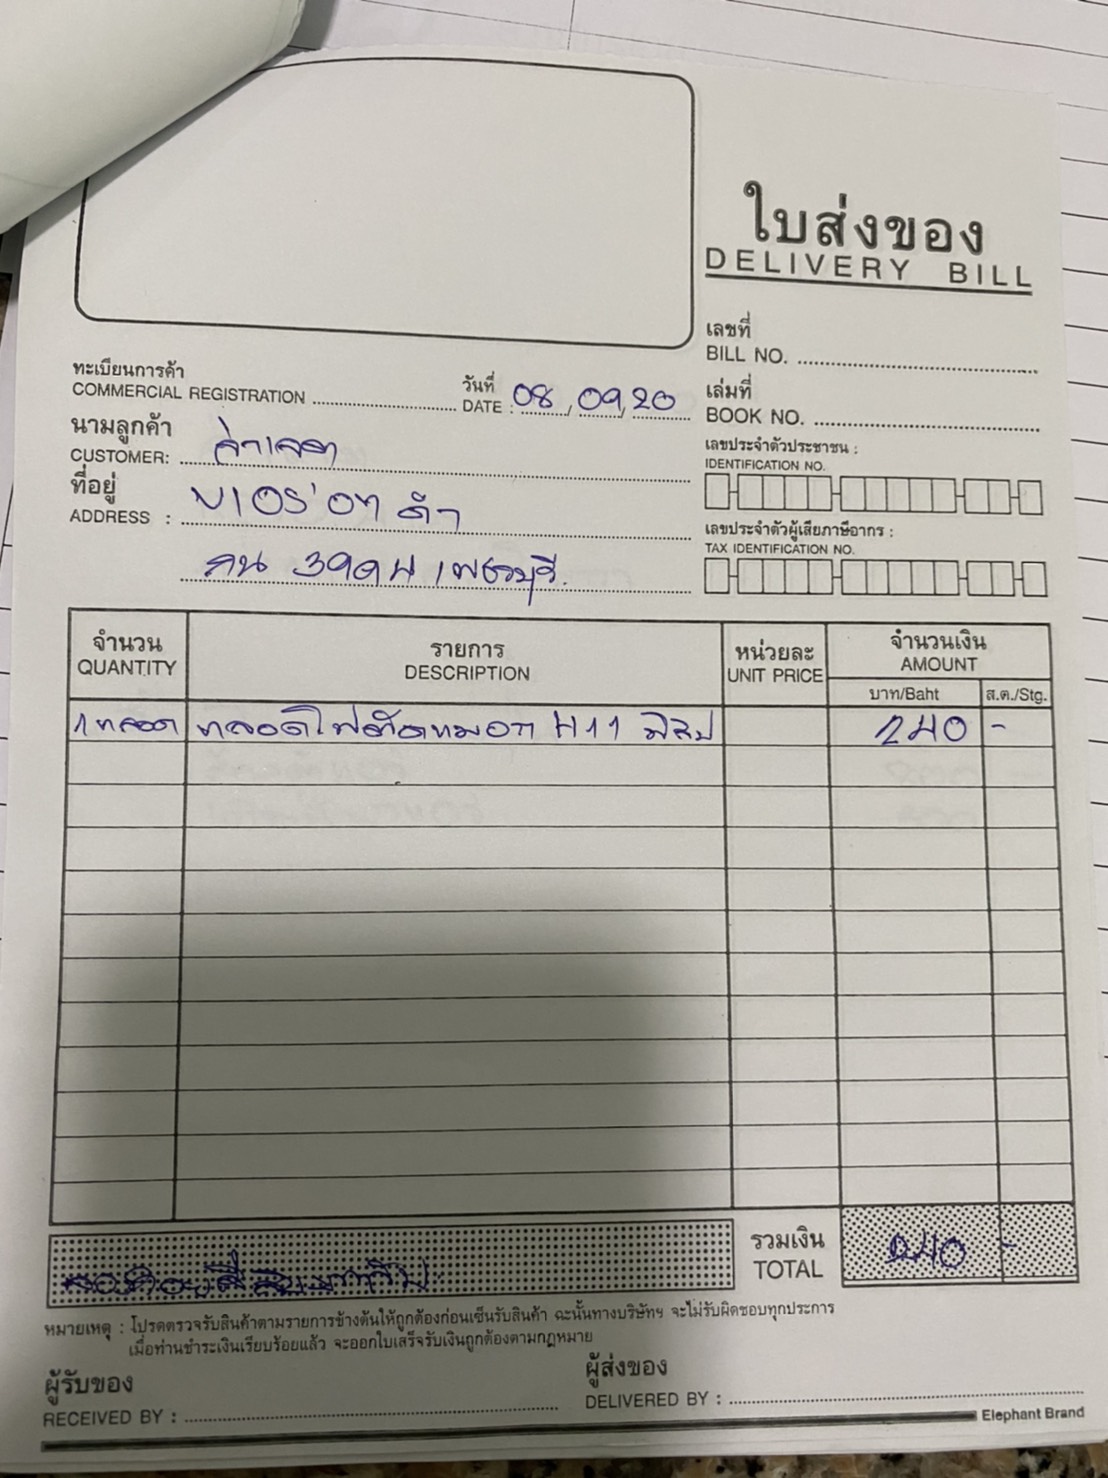 ใบส่งของ
DELIVERY BILL
เลขที่
BILL NO.
ทะเบียนการค้า
COMMERCIAL REGISTRATION
วันที่
DATE : 08 / 09 / 20
เล่มที่
BOOK NO.
นามลูกค้า
CUSTOMER:
เลขประจำตัวประชาชน :
IDENTIFICATION NO.
ที่อยู่
ADDRESS : ดำ
เลขประจำตัวผู้เสียภาษีอากร :
TAX IDENTIFICATION NO.
เพชรบุรี
จำนวน รายการ หน่วยละ จำนวนเงิน
QUANTITY DESCRIPTION UNIT PRICE AMOUNT
บาท/Baht ส.ต./Stg.
1 หลอด หลอดไฟตัดหมอก H11 240 -
รวมเงิน 240 -
TOTAL
หมายเหตุ : โปรดตรวจรับสินค้าตามรายการข้างต้นให้ถูกต้องก่อนเซ็นรับสินค้า ฉะนั้นทางบริษัทฯ จะไม่รับผิดชอบทุกประการ
เมื่อท่านชำระเงินเรียบร้อยแล้ว จะออกใบเสร็จรับเงินถูกต้องตามกฎหมาย
ผู้รับของ
RECEIVED BY :
ผู้ส่งของ
DELIVERED BY :
Elephant Brand